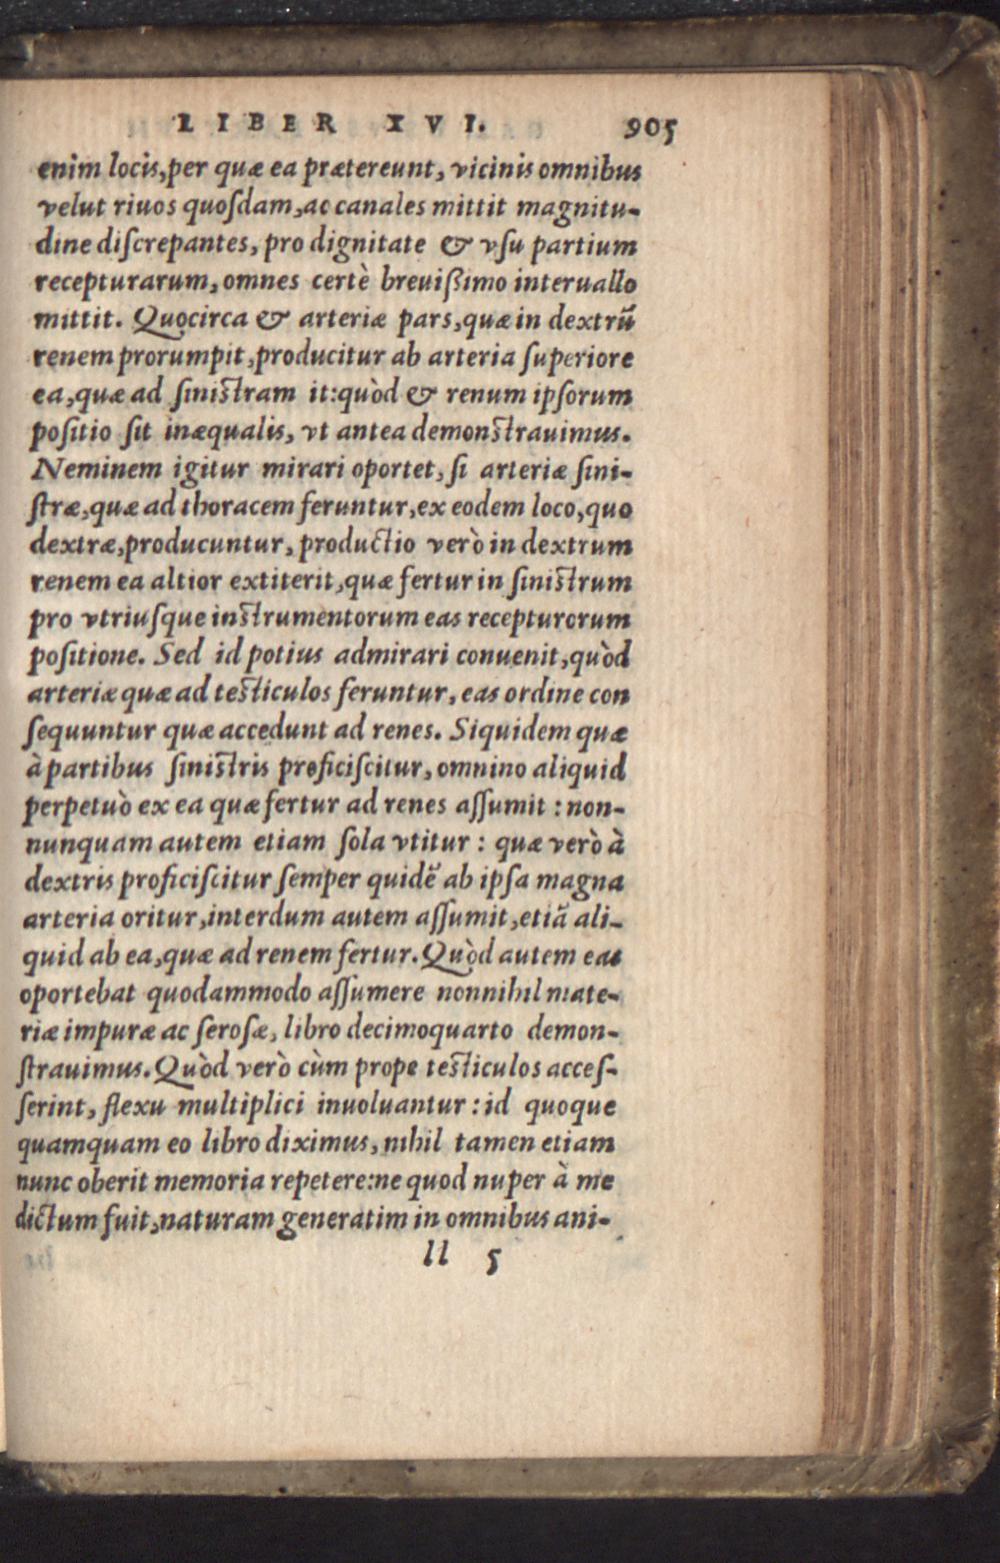 LIBER XVI. 905
enim locis, per quæ ea prætereunt, vicinis omnibus
velut riuos quoſdam, ac canales mittit magnitu-
dine diſcrepantes, pro dignitate & vſu partium
recepturarum, omnes certè breuiſsimo interuallo
mittit. Quocirca & arteriæ pars, quæ in dextrũ
renem prorumpit, producitur ab arteria ſuperiore
ea, quæ ad ſiniſtram it: quòd & renum ipſorum
poſitio ſit inæqualis, vt antea demonſtrauimus.
Neminem igitur mirari oportet, ſi arteriæ ſini-
ſtræ, quæ ad thoracem feruntur, ex eodem loco, quo
dextræ, producuntur, productio verò in dextrum
renem ea altior extiterit, quæ fertur in ſiniſtrum
pro vtriuſque inſtrumentorum eas recepturorum
poſitione. Sed id potius admirari conuenit, quòd
arteriæ quæ ad teſticulos feruntur, eas ordine con
ſequuntur quæ accedunt ad renes. Siquidem quæ
à partibus ſiniſtris proficiſcitur, omnino aliquid
perpetuò ex ea quæ fertur ad renes aſſumit: non-
nunquam autem etiam ſola vtitur: quæ verò à
dextris proficiſcitur ſemper quidẽ ab ipſa magna
arteria oritur, interdum autem aſſumit, etiã ali-
quid ab ea, quæ ad renem fertur. Quòd autem eas
oportebat quodammodo aſſumere nonnihil mate-
riæ impuræ ac ſeroſæ, libro decimoquarto demon-
ſtrauimus. Quòd verò cùm prope teſticulos acceſ-
ſerint, flexu multiplici inuoluantur: id quoque
quamquam eo libro diximus, nihil tamen etiam
nunc oberit memoria repetere: ne quod nuper à me
dictum fuit, naturam generatim in omnibus ani-
ll 5